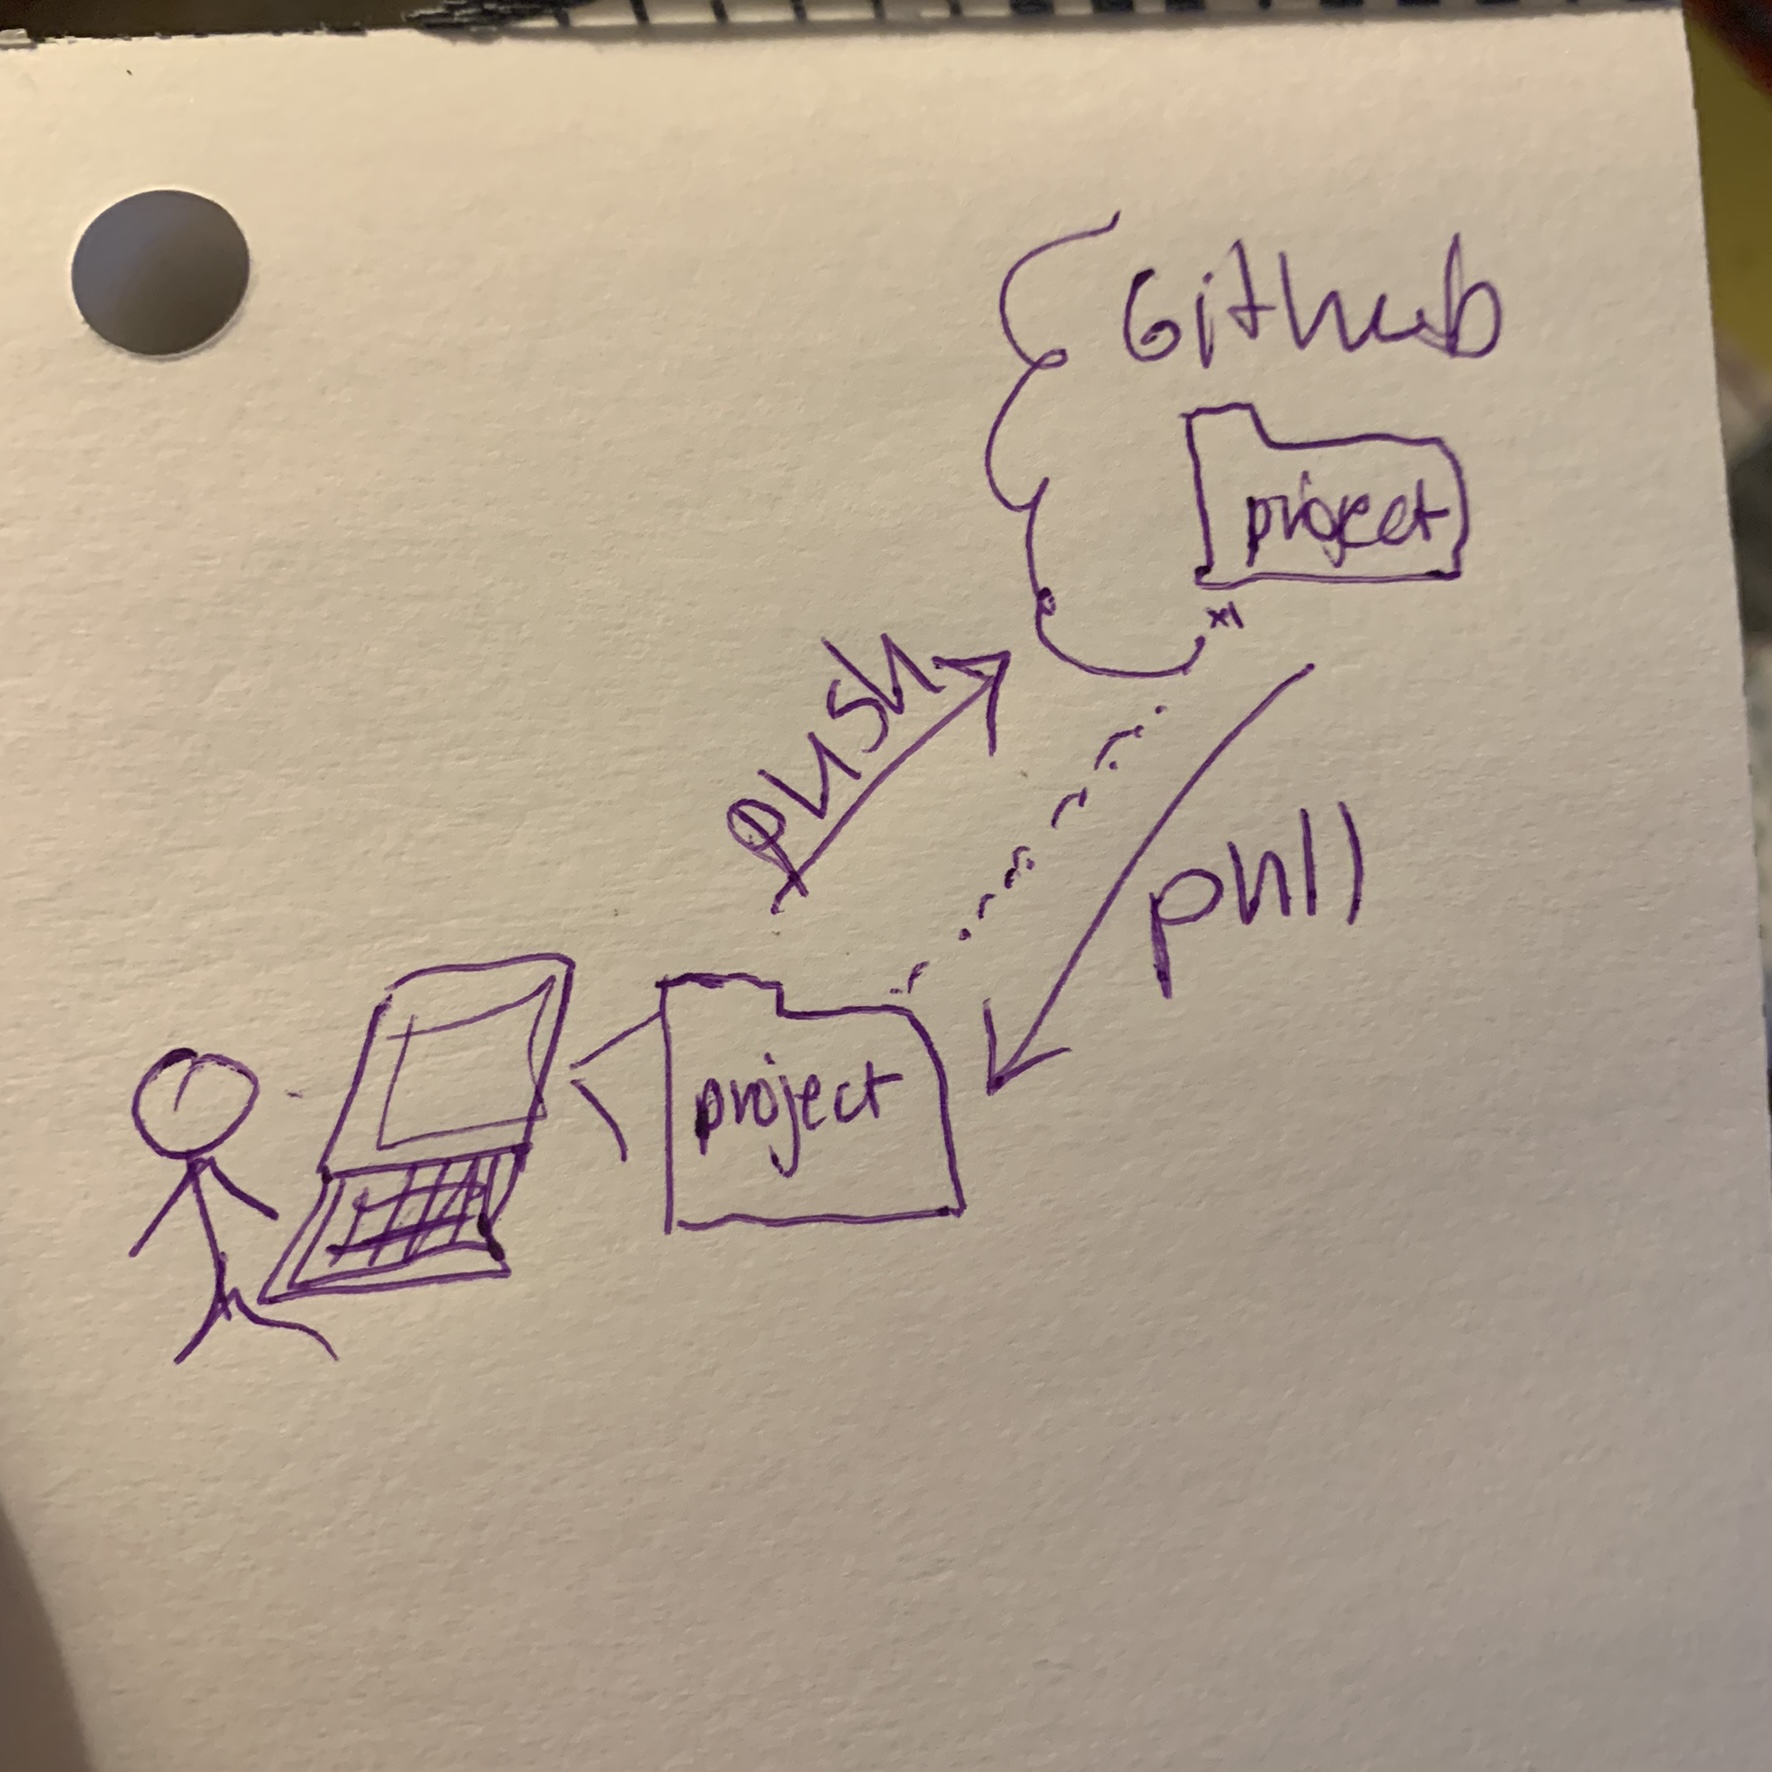 Github
project
push
pull
project